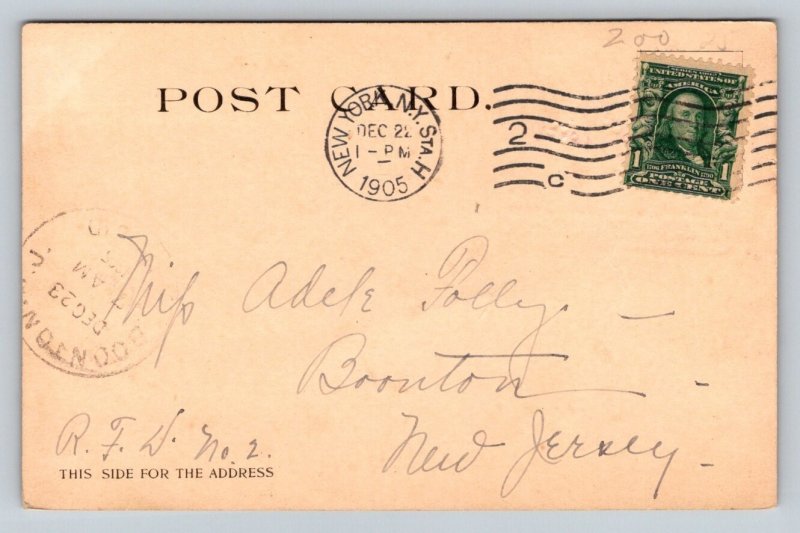 200
POST CARD.
NEW YORK, N.Y. STA. H
DEC 22
1 - PM
1905
2
C
SERIES 1902
UNITED STATES OF
AMERICA
1 1706 FRANKLIN 1790 1
POSTAGE
ONE CENT
BOONTON N.J.
DEC 23
AM
Miss Adele Folly. —
Boonton —
New Jersey —
R. F. D. No. 2.
THIS SIDE FOR THE ADDRESS